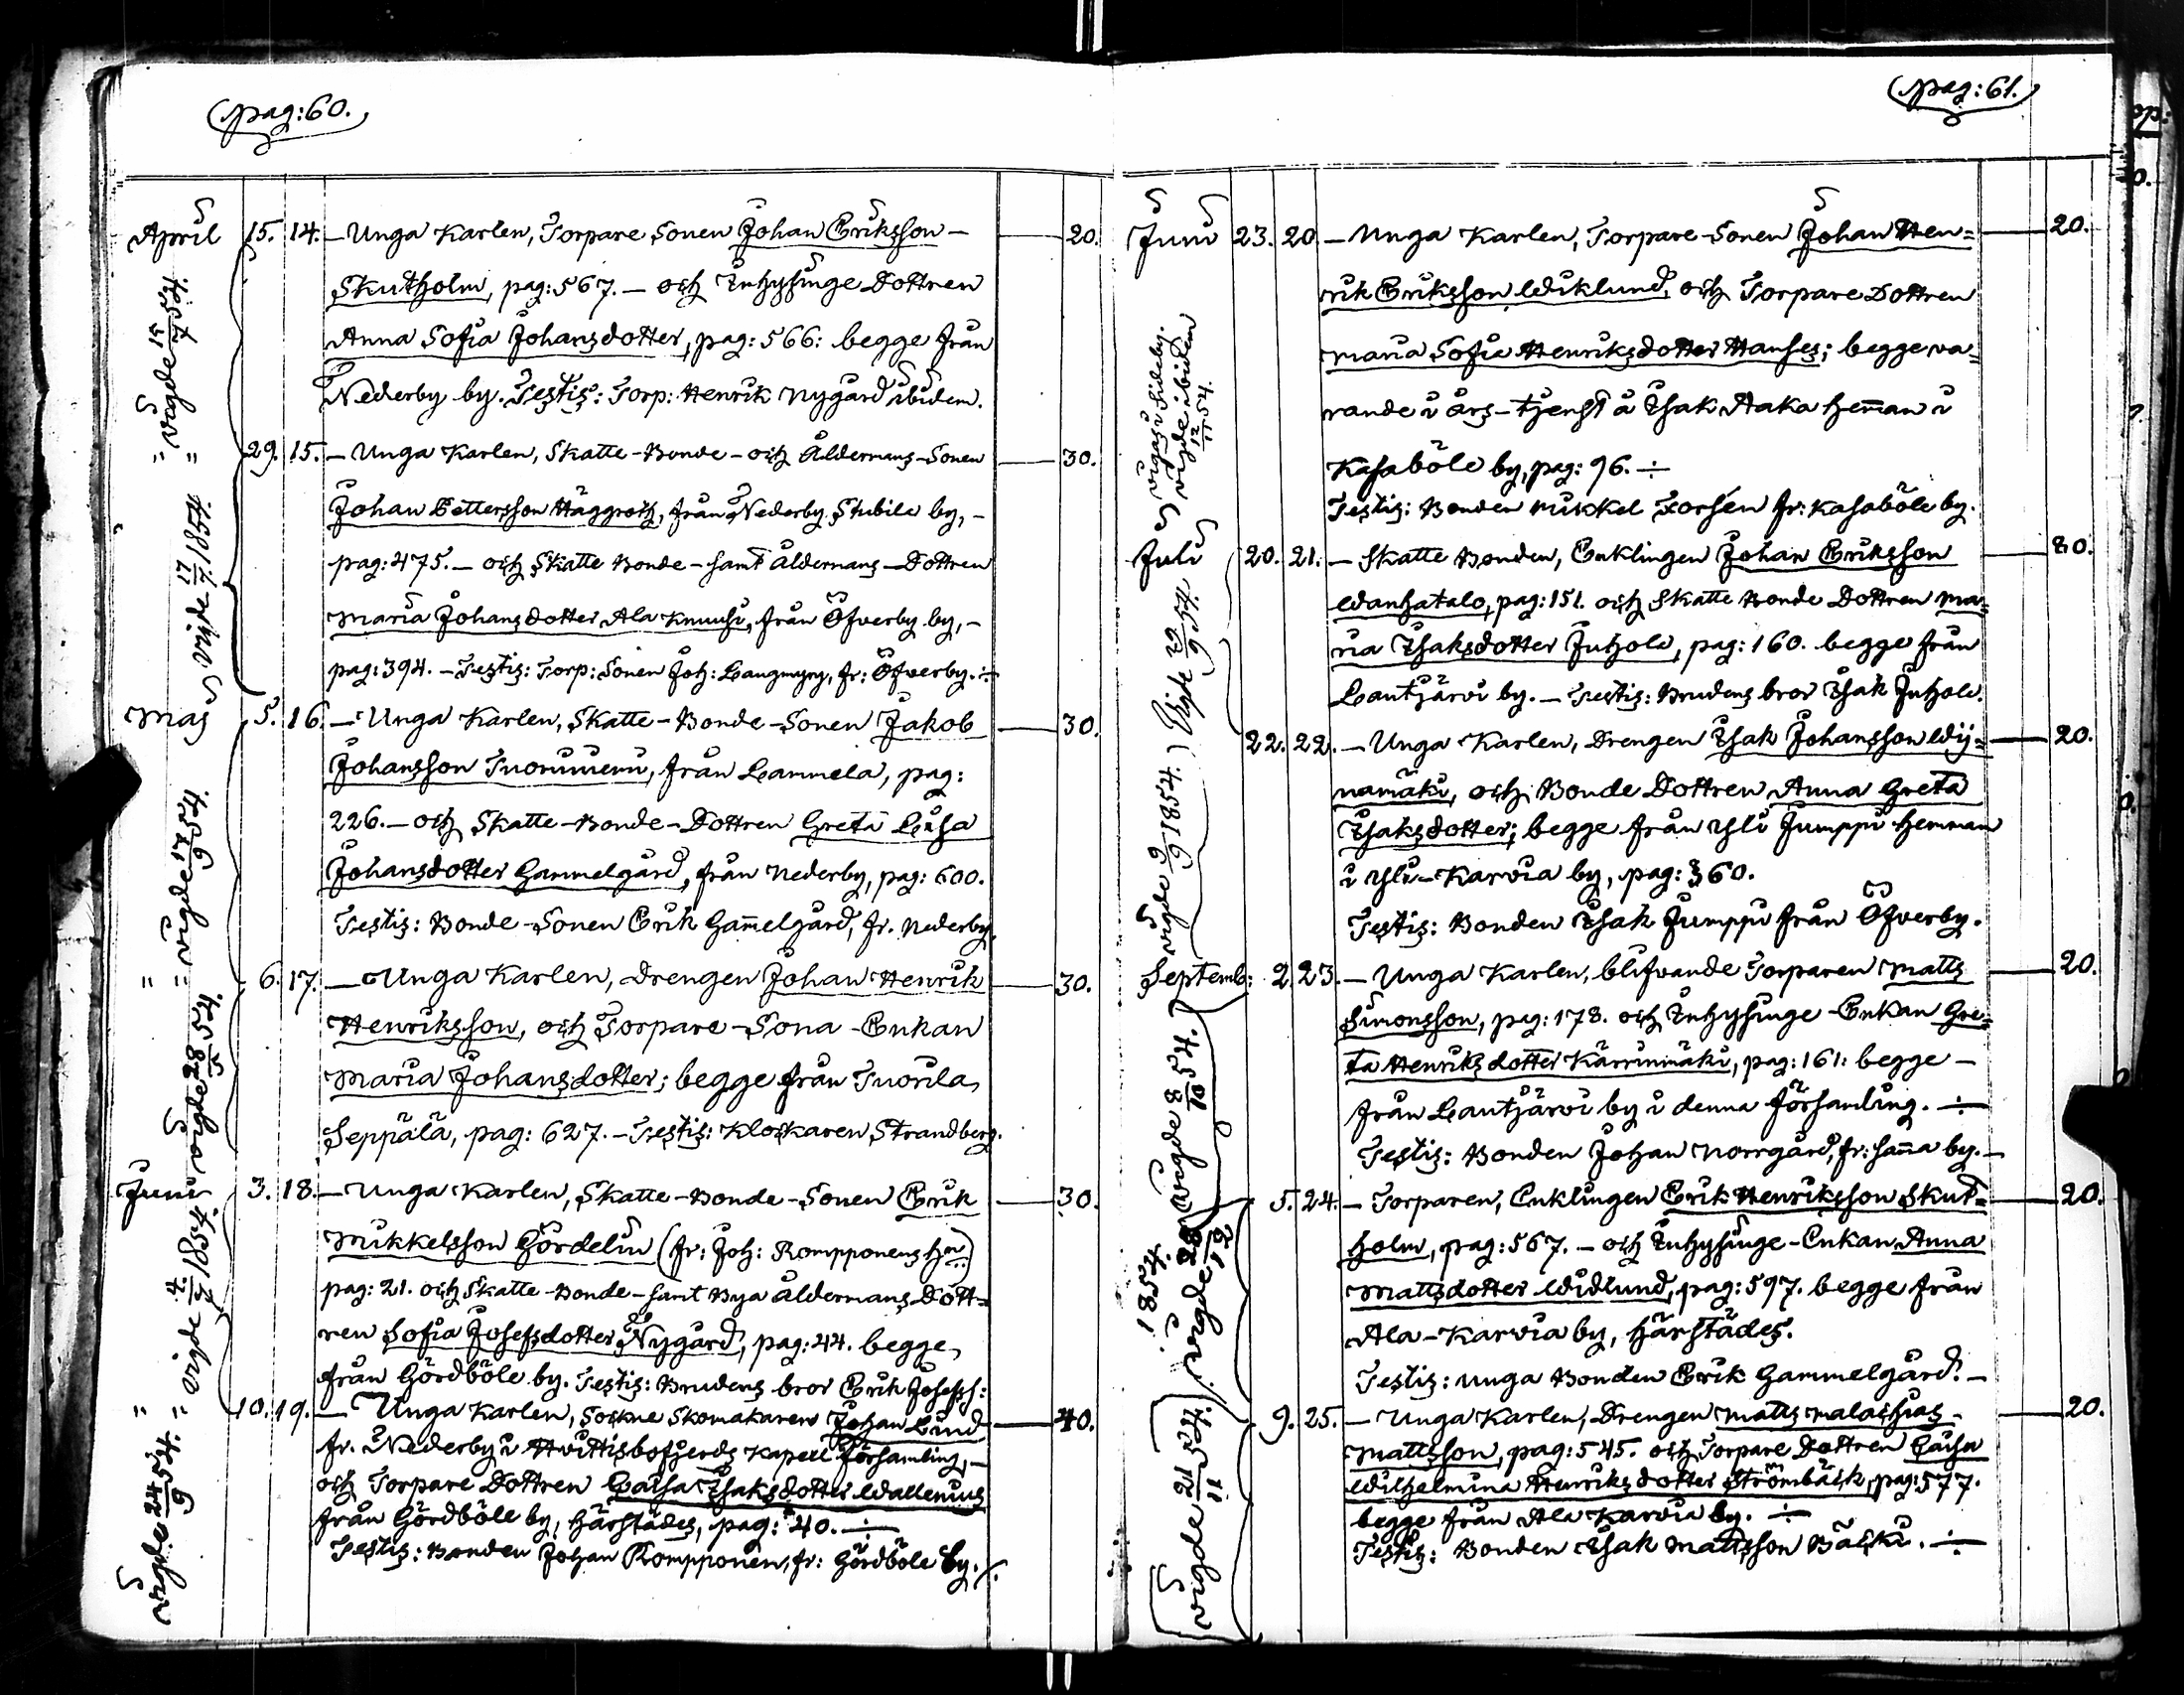 pag: 60.
April 15. 14. – Unga Karlen, Torpare Sonen Johan Eriksson – 20.
Skutholm, pag: 567. – och Inhysinge Dottren
Anna Sofia Johansdotter, pag: 566: begge från
Nederby by. Testis: Torp: Henrik Nygård ibidem.
" = vigde 15/7 54.
" 29. 15. – Unga Karlen, Skatte-Bonde- och Åldermans-Sonen 30.
Johan Pettersson Häggroth, från Nederby Stubile by, –
pag: 475. – och Skatte Bonde- samt Åldermans-Dottren
Maria Johansdotter Ala Knuusi, från Öfverby by, –
pag: 394. – Testis: Torp: Sonen Joh: Laugmyry, fr: Öfverby. ÷
Maj 5. 16. – Unga Karlen, Skatte-Bonde-Sonen Jakob 30.
Johansson Tuoruniemi, från Lammela, pag:
226. – och Skatte-Bonde-Dottren Greta Lisa
Johansdotter Gammelgård, från Nederby, pag: 600.
Testis: Bonde-Sonen Erik Gam̄elgård, fr. Nederby.
= vigde 17/9 54.
" = 6. 17. – Unga Karlen, Drengen Johan Henrik 30.
Henriksson, och Torpare-Sona-Enkan
Maria Johansdotter; begge från Tuorila,
Seppälä, pag: 627. – Testis: Klockaren Strandberg.
vigde 28/5 54.
Juni 3. 18. – Unga Karlen, Skatte-Bonde-Sonen Erik 30.
Mikkelsson Gördelin (fr: Joh: Rompponens Hn)
pag: 21. och Skatte-Bonde-samt Bya Åldermans Dott=
ren Sofia Josefsdotter Nygård, pag: 44. begge,
från Gördböle by. Testis: Brudens bror Erik Josefss:
" = vigde 1854.
10. 19. – Unga Karlen, Sockne Skomakaren Johan Lind 40.
fr. Nederby i Hvittisbofjerds Kapell Församling, –
och Torpare Dottren Caisa Isaksdotter Wallenius
från Gördböle by, härstädes, pag: 40. – ÷
Testis: Bonden Johan Rompponen, fr: Gördböle by. ÷
vigde 24/9 54.
pag: 61.
Juni 23. 20. – Unga Karlen, Torpare-Sonen Johan Hen= 20.
rik Eriksson Wiklund, och Torpare Dottren
Maria Sofia Henriksdotter Hanses; begge va=
rande i års-tjenst å Isak Aaka Hem̄an i
Kasaböle by, pag: 96. ÷
Testis: Bonden Mikkel Forsén fr: Kasaböle by.
vigas i Sideby.
vigde ibidem 12/11 54.
Juli 20. 21. – Skatte Bonden, Enklingen Johan Eriksson 80.
Wanhatalo, pag: 151. och Skatte Bonde Dottren Ma=
ria Isaksdotter Juhola, pag: 160. begge från
Lautjärvi by. – Testis: Brudens bror Isak Juhola.
22. 22. – Unga Karlen, Drengen Isak Johansson Wij= 20.
namäki, och Bonde Dottren Anna Greta
Isaksdotter; begge från Yli Jumppi Hemman
i Yli-Karvia by, pag: 360.
Testis: Bonden Isak Jumppi från Öfverby.
vigde 9/9 1854.
Septemb: 2. 23. – Unga Karlen, blifvande Torparen Matts 20.
Simonsson, pag: 178. och Inhysinge-Enkan Gre=
ta Henriksdotter Kärrinmäki, pag: 161: begge –
från Lautjärvi by i denna församling. – ÷
Testis: Bonden Johan Norrgård, fr: sam̄a by. –
vigde 8/10 54.
5. 24. – Torparen, Enklingen Erik Henriksson Skut= 20.
holm, pag: 567. – och Inhysinge-Enkan Anna
Mattsdotter Widlund, pag: 597. begge från
Ala-Karvia by, härstädes.
Testis: Unga Bonden Erik Gammelgård. –
1854.
9. 25. – Unga Karlen, Drengen Matts Malachias 20.
Mattsson, pag: 545. och Torpare Dottren Caisa
Wilhelmina Henriksdotter Strömbäck, pag: 577.
begge från Ala Karvia by. ÷
Testis: Bonden Isak Mattsson Bäcki. ÷
vigde 12/11 54.